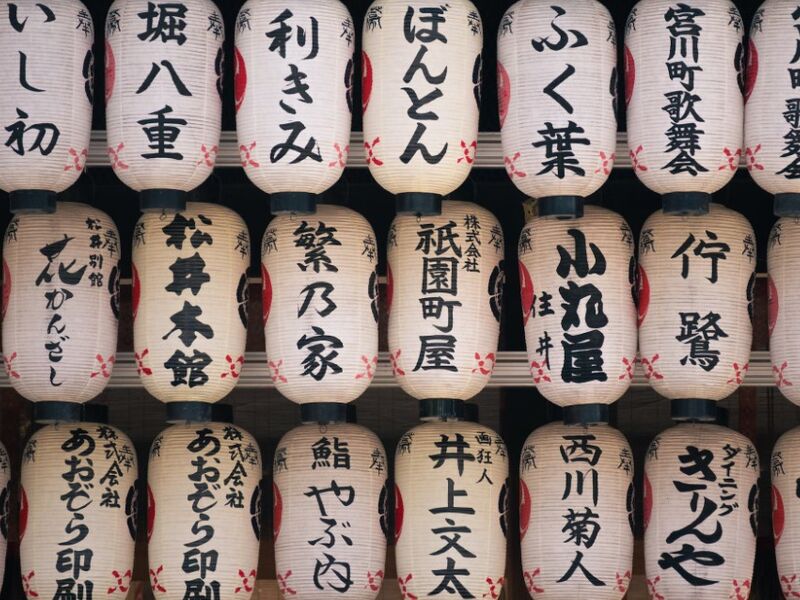 いし初
奉
堀八重
奉
利きみ
奉
ぼんとん
奉
ふく葉
奉
宮川町歌舞会
奉
町歌舞会
松井別館
花かんざし
奉
松井本館
奉
繁乃家
奉
株式会社
祇園町屋
小丸屋
住井
奉
佇鷺
奉
株式会社
あおぞら印刷
株式会社
あおぞら印刷
鮨やぶ内
奉
画狂人
井上文太
西川菊人
奉
ダイニング
きりんや